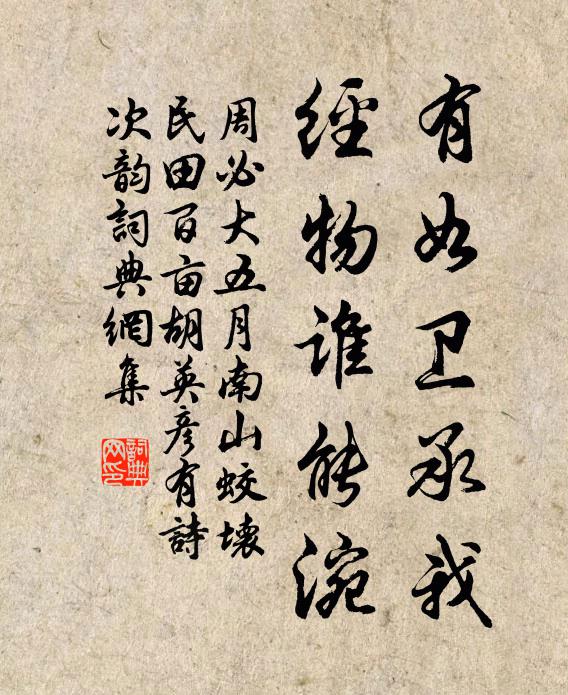 有如卫承我
經物谁能浼
周必大五月南山蛟壊
民田百亩胡英彦有詩
次韵詞典網集
詞典网印